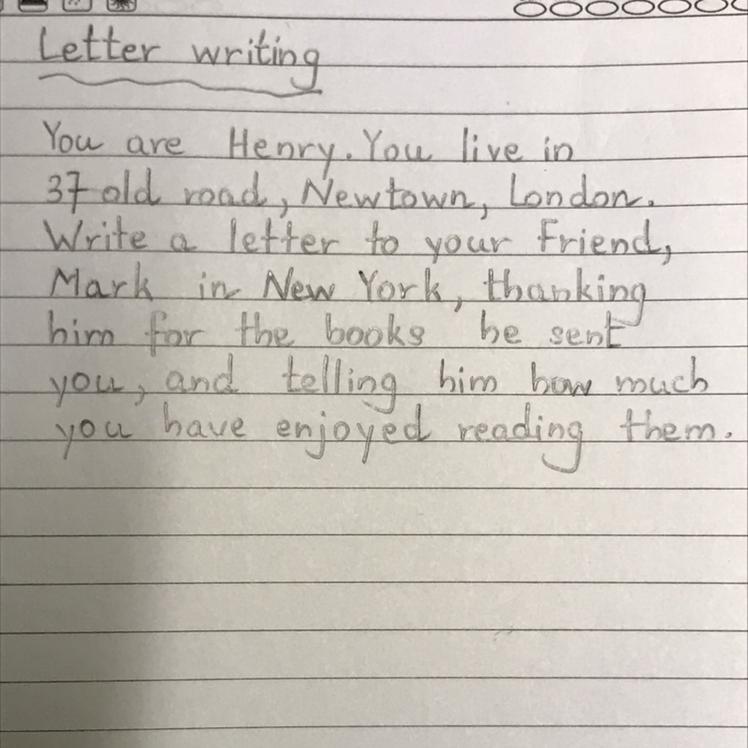 Letter writing
You are Henry. You live in
37 old road, Newtown, London.
Write a letter to your friend,
Mark in New York, thanking
him for the books he sent
you, and telling him how much
you have enjoyed reading them.